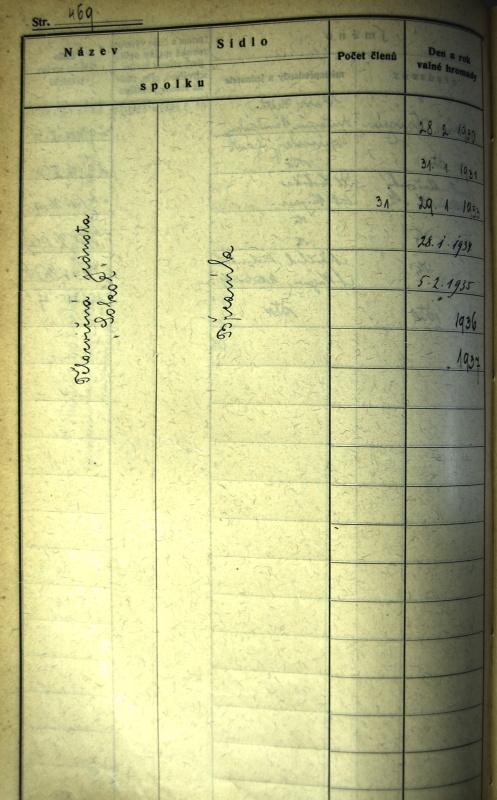 Str. 469
Název
Sídlo
spolku
Počet členů
Den a rok
valné hromady
Tělocvičná jednota
"Sokol"
28. 2. 1930
31. 1. 1931
31 29. 1. 1933
28. 1. 1934
5. 2. 1935
" 1936
" 1937